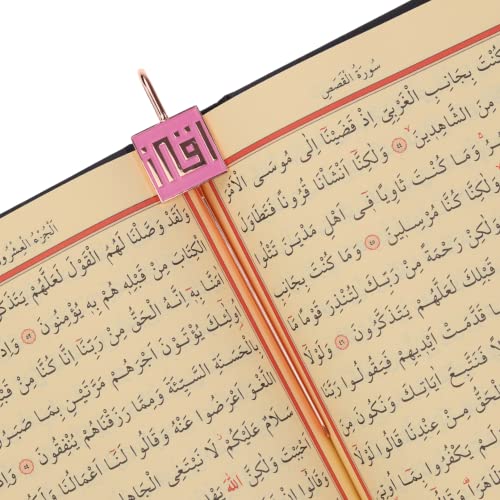 اقرأ
سُورَةُ الْقَصَصِ
كُنْتَ بِجَانِبِ الْغَرْبِيِّ اِذْ قَضَيْنَٓا اِلٰى مُوسَى الْاَمْرَ
مِنَ الشَّاهِدِينَ ٤٤ وَلٰكِنَّٓا اَنْشَأْنَا قُرُونًا فَتَطَاوَلَ
وَمَا كُنْتَ ثَاوِيًا فِٓي اَهْلِ مَدْيَنَ تَتْلُوا
وَلٰكِنَّا كُنَّا مُرْسِلِينَ ٤٥ وَمَا كُنْتَ بِجَانِبِ
وَلٰكِنْ رَحْمَةً مِنْ رَبِّكَ لِتُنْذِرَ قَوْمًا مَٓا
قَبْلِكَ لَعَلَّهُمْ يَتَذَكَّرُونَ ٤٦ وَلَوْلَٓا
قَدَّمَتْ اَيْدِيهِمْ فَيَقُولُوا رَبَّنَا
فَنَتَّبِعَ اٰيَاتِكَ وَنَكُونَ مِنَ
مِنْ عِنْدِنَا قَالُوا لَوْلَٓا
يَكْفُرُوا بِمَٓا
اَلْجُزْءُ الْعِشْرُونَ
وَلَقَدْ وَصَّلْنَا لَهُمُ الْقَوْلَ لَعَلَّهُمْ يَتَذَكَّرُونَ
الْكِتَابَ مِنْ قَبْلِهِ هُمْ بِهِ يُؤْمِنُونَ ٥٢ وَاِذَا
بِهِٓ اِنَّهُ الْحَقُّ مِنْ رَبِّنَٓا اِنَّا كُنَّا مِنْ
اُولٰٓئِكَ يُؤْتَوْنَ اَجْرَهُمْ مَرَّتَيْنِ بِمَا صَبَرُوا
الْحَسَنَةِ السَّيِّئَةَ وَمِمَّا رَزَقْنَاهُمْ يُنْفِقُونَ ٥٤ وَاِذَا
اللَّغْوَ اَعْرَضُوا عَنْهُ وَقَالُوا لَنَٓا اَعْمَالُنَا
سَلَامٌ عَلَيْكُمْ لَا نَبْتَغِي الْجَاهِلِينَ
اَحْبَبْتَ وَلٰكِنَّ اللّٰهَ
وَقَالُٓوا